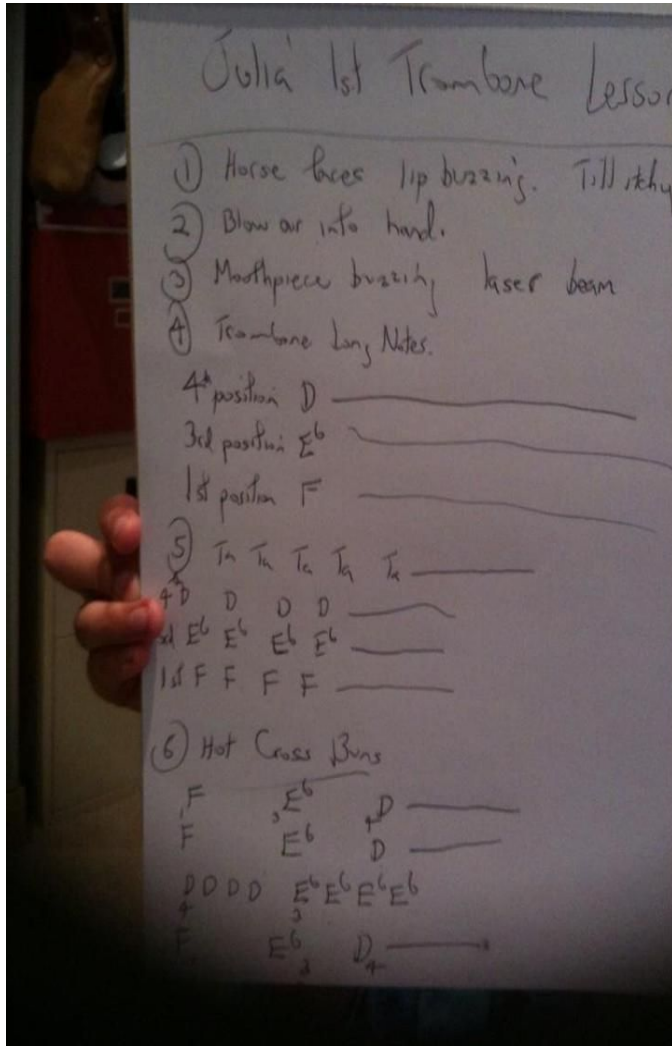 Julia' 1st Trombone Lesson
① Horse faces lip buzzing. Till itchy
② Blow air into hand.
③ Mouthpiece buzzing laser beam
④ Trombone Long Notes.
4th position D
3rd position E♭
1st position F
⑤ Ta Ta Ta Ta Ta
4th D D D D
3rd E♭ E♭ E♭ E♭
1st F F F F
⑥ Hot Cross Buns
F 1 E♭ 3 D 4
F E♭ D
D D D D E♭ E♭ E♭ E♭
4 3
F E♭ 3 D 4